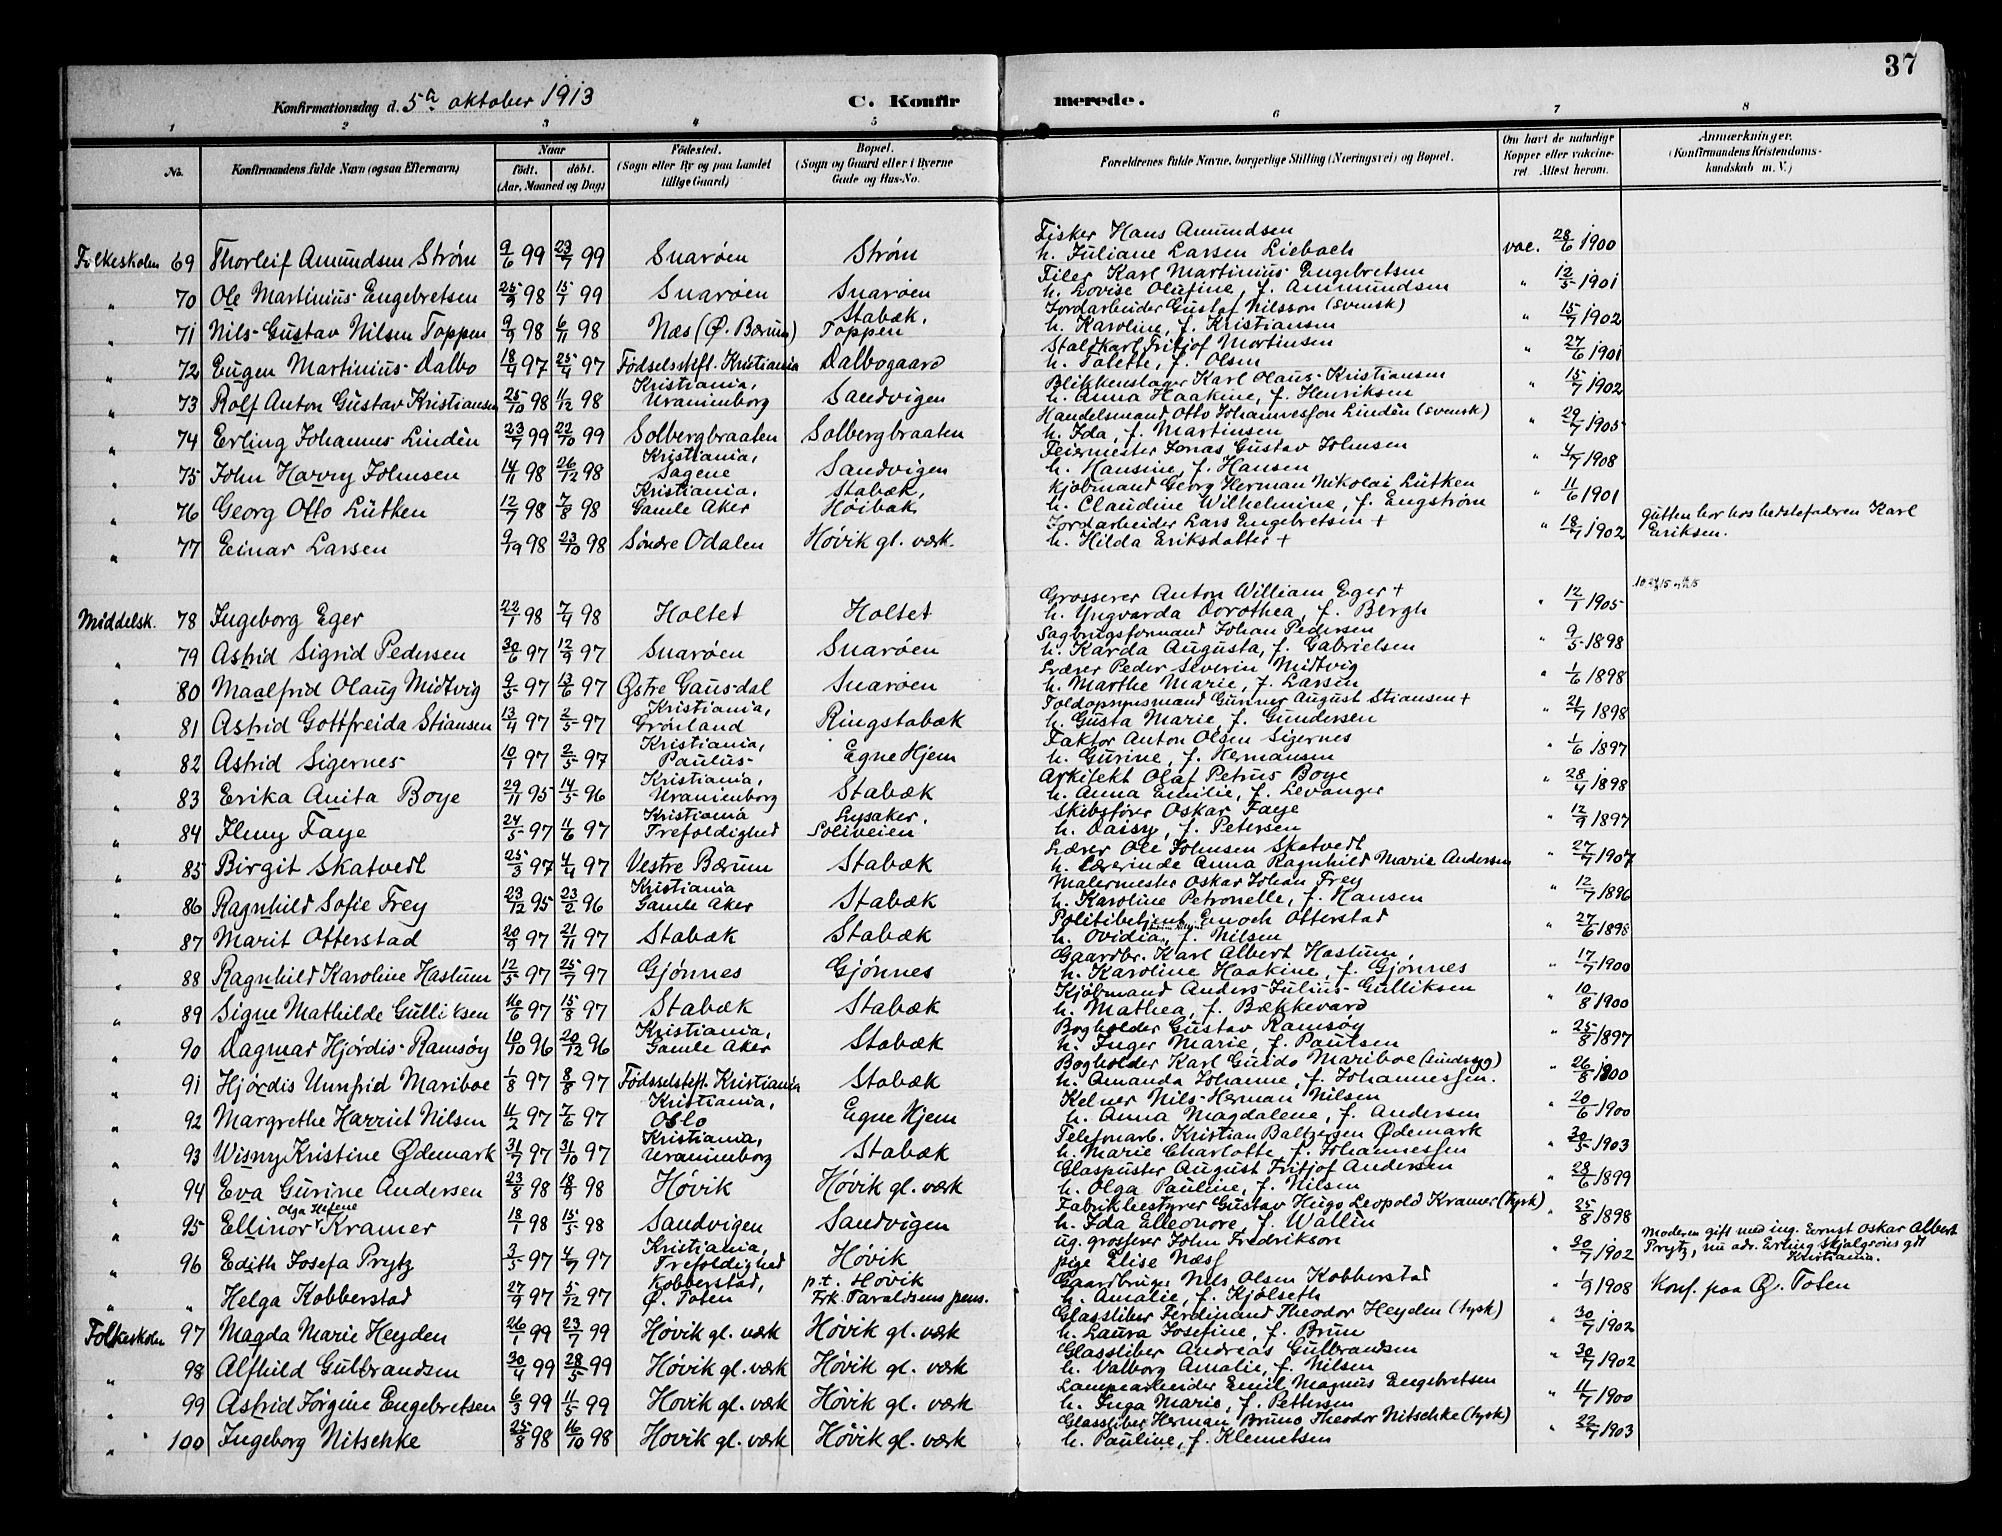 37
Konfirmationsdag d. 5te oktober 1913 C. Konfirmerede.
1 2 3 4 5 6 7 8
No. Konfirmandens fulde Navn (ogsaa Efternavn) Naar født. døbt. (Aar, Maaned og Dag) Fødested. (Sogn eller By og paa Landet tillige Gaard) Bopæl. (Sogn og Gaard eller i Byerne Gade og Hus-No. Forældrenes fulde Navne, borgerlige Stilling (Næringsvei) og Bopæl. Om havt de naturlige Kopper eller vakcineret Attest herom. Anmærkninger. (Konfirmandens Kristendomskundskab m. V.)
Folkeskolen 69 Thorleif Amundsen Strøm 9/6 99 23/7 99 Snarøen Strøm Fisker Hans Amundsen h. Juliane Larsen Liebach vac. 28/6 1900
" 70 Ole Martinius Engebretsen 25/9 98 15/1 99 Snarøen Snarøen Filer Karl Martinius Engebretsen h. Lovise Olufine, f. Ammundsen " 12/5 1901
" 71 Nils Gustav Nilsen Toppen 9/9 98 6/11 98 Næs (Ø. Bærum) Stabæk, Toppen Jordarbeider Gustaf Nilsson (svensk) h. Karoline, f. Kristiansen " 15/7 1902
" 72 Eugen Martinius Dalbo 18/4 97 25/4 97 Fødselsstift. Kristiania Dalbogaard Staldkarl Fritjof Martinsen h. Talette, f. Olsen " 27/6 1901
" 73 Rolf Anton Gustav Kristiansen 25/10 98 11/12 98 Kristiania, Uranienborg Sandvigen Blikkenslager Karl Olaus Kristiansen h. Anna Haakine, f. Henriksen " 15/7 1902
" 74 Erling Johannes Lindèn 23/7 99 22/10 99 Solbergbraaten Solbergbraaten Handelsmand Otto Johannesson Lindèn (svensk) h. Ida, f. Martinsen " 29/7 1905
" 75 John Harry Johnsen 14/11 98 26/12 98 Kristiania, Sagene Sandvigen Feiermester Jonas Gustav Johnsen h. Hansine, f. Hansen " 4/7 1908
" 76 Georg Otto Lütken 12/7 98 7/8 98 Kristiania, Gamle Aker Stabæk, Høibak Kjøbmand Georg Herman Nikolai Lütken h. Claudine Wilhelmine, f. Engstrøm " 11/6 1901
" 77 Einar Larsen 9/9 98 23/10 98 Søndre Odalen Høvik gl. værk. Jordarbeider Lars Engebretsen + h. Hilda Eriksdatter + " 18/7 1902 Gutten bor hos bestefaderen Karl Eriksen.
Middelsk. 78 Ingeborg Eger 22/1 98 7/4 98 Holtet Holtet Grosserer Anton William Eger + h. Yngvarda Dorothea, f. Bergh " 12/1 1905
" 79 Astrid Sigrid Pedersen 30/6 97 12/9 97 Snarøen Snarøen Sagbrugsformand Johan Pedersen h. Karda Augusta, f. Gabrielsen " 9/5 1898
" 80 Maalfrid Olaug Midtvig 9/5 97 13/6 97 Østre Gausdal Snarøen Lærer Peder Severin Midtvig h. Marthe Marie, f. Larsen " 1/6 1898
" 81 Astrid Gottfreida Stiansen 13/4 97 2/5 97 Kristiania, Grønland Ringstabæk Toldopsynsmand Gunner August Stiansen + h. Gusta Marie, f. Gundersen " 21/7 1898
" 82 Astrid Sigernes 10/1 97 2/5 97 Kristiania, Paulus Egne Hjem Faktor Anton Olsen Sigernes h. Gurine, f. Hermansen " 1/6 1897
" 83 Erika Anita Boye 29/11 95 14/5 96 Kristiania, Uranienborg Stabæk Arkitekt Olaf Petrus Boye h. Anna Emilie, f. Levanger " 28/4 1898
" 84 Jenny Faye 24/5 97 11/6 97 Kristiania Trefoldighed Lysaker, Soliveien Skibsfører Oskar Faye h. Daisy, f. Petersen " 12/9 1897
" 85 Birgit Skatvedt 25/3 97 4/4 97 Vestre Bærum Stabæk Lærer Ole Johnsen Skatvedt h. Lærerinde Anna Ragnhild Marie Andersen " 27/7 1907
" 86 Ragnhild Sofie Frey 23/12 95 23/2 96 Kristiania Gamle Aker Stabæk Malermester Oskar Johan Frey h. Karoline Petronelle, f. Hansen " 12/7 1896
" 87 Marit Otterstad 20/9 97 21/11 97 Stabæk Stabæk Politibetjent Enoch Otterstad h. Ovidia, f. Nilsen " 27/6 1898
" 88 Ragnhild Karoline Hastum 12/5 97 25/7 97 Gjønnes Gjønnes Gaardbr. Karl Albert Hastum, h. Karoline Haakine, f. Gjønnes " 17/7 1900
" 89 Signe Mathilde Gulliksen 16/6 97 15/8 97 Stabæk Stabæk Kjøbmand Anders Julius Gulliksen h. Mathea, f. Bækkevard " 10/8 1900
" 90 Dagmar Hjørdis Ramsøy 10/10 96 20/12 96 Kristiania, Gamle Aker Stabæk Bogholder Gustav Ramsøy h. Inger Marie, f. Paulsen " 25/8 1897
" 91 Hjørdis Unnfrid Mariboe 1/8 97 8/8 97 Fødselsstift. Kristiania Stabæk Bogholder Karl Guido Mariboe (sindsyg) h. Amanda Johanne, f. Johannessen. " 26/8 1900
" 92 Margrethe Harriet Nilsen 11/2 97 7/6 97 Kristiania, Oslo Egne Hjem Kelner Nils Herman Nilsen h. Anna Magdalene, f. Andersen " 20/6 1900
" 93 Wisny Kristine Ødemark 31/7 97 31/10 97 Kristiania, Uranienborg Stabæk Telefonarb. Kristian Baltzersen Ødemark h. Marie Charlotte, f. Johannessen " 30/5 1903
" 94 Eva Gurine Andersen 23/8 98 18/9 98 Høvik Høvik gl. værk Glaspuster August Fritjof Andersen h. Olga Pauline, f. Nilsen " 28/6 1899
" 95 Ellinor Olga Helene Kramer 18/1 98 15/5 98 Sandvigen Sandvigen Fabrikbestyrer Gustav Hugo Leopold Kramer (tysk) h. Ida Elleonore, f. Wallin " 25/8 1898
" 96 Edith Josefa Prytz 3/5 97 4/7 97 Kristiania, Trefoldighed Høvik ug. grosserer John Fredrikson pige Elise Næss " 30/7 1902 Moderen gift med ing. Ernst Oskar Albert Prytz, nu adr. Erling Skjalgsøns gt Kristiania.
" " Helga Kobberstad 27/9 97 5/12 97 Kobberstad, Ø. Toten p.t. Høvik Frk. Taraldsens pens. Gaardbruger Nils Olsen Kobberstad h. Amalie, f. Kjølseth " 1/9 1908 Konf. paa Ø. Toten
Folkeskolen 97 Magda Marie Heyden 26/1 99 23/7 99 Høvik gl. værk Høvik gl. værk Glassliber Ferdinand Theodor Heyden (tysk) h. Laura Josefine, f. Brun " 30/7 1902
" 98 Alfhild Gulbrandsen 30/4 99 28/5 99 Høvik gl. værk Høvik gl. værk Glassliber Andreas Gulbrandsen h. Valborg Amalie, f. Nilsen " 30/7 1902
" 99 Astrid Jørgine Engebretsen 6/3 99 11/5 99 Høvik gl. værk Høvik gl. værk Lampearbeider Emil Magnus Engebretsen h. Inga Marie, f. Pettersen " 11/7 1900
" 100 Ingeborg Nitschke 25/8 98 16/10 98 Høvik gl. værk Høvik gl. værk Glassliber Herman Bruno Theodor Nitschke (tysk) h. Pauline, f. Klemetsen " 22/7 1903